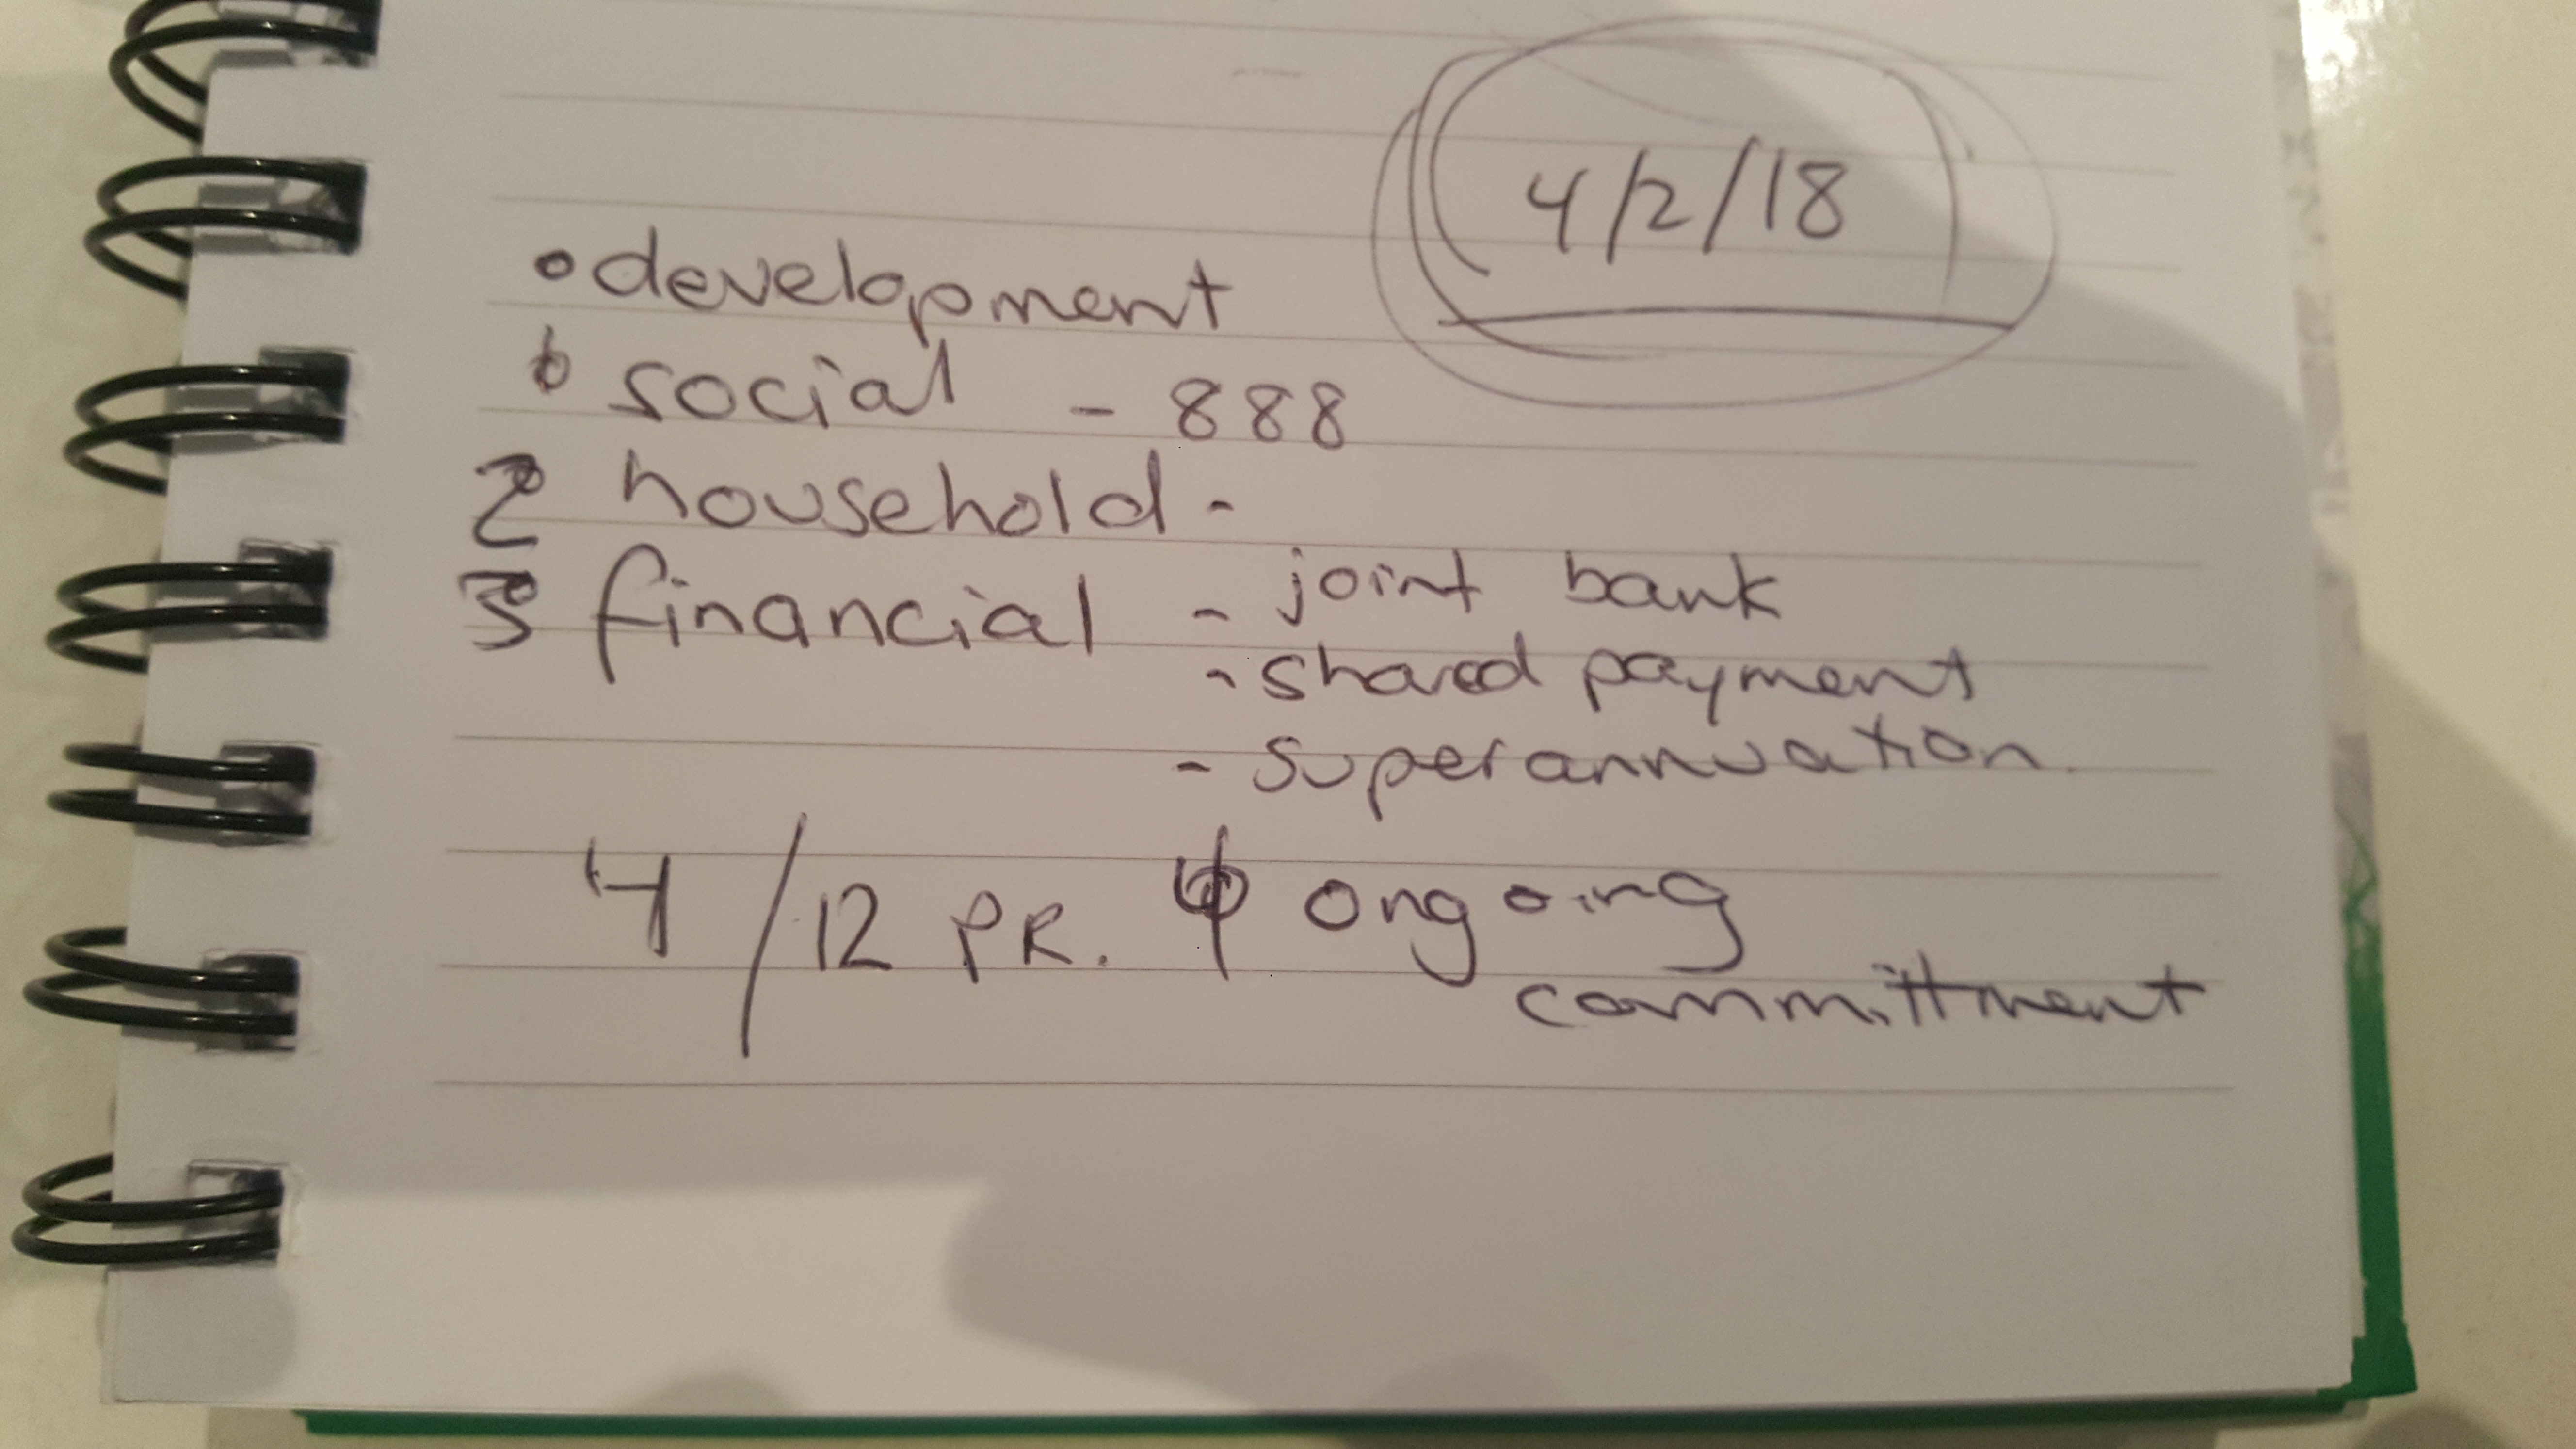 4/2/18
• development
• social - 888
2 household -
3 financial - joint bank
- shared payment
- superannuation
4/12 PR. ongoing
committment